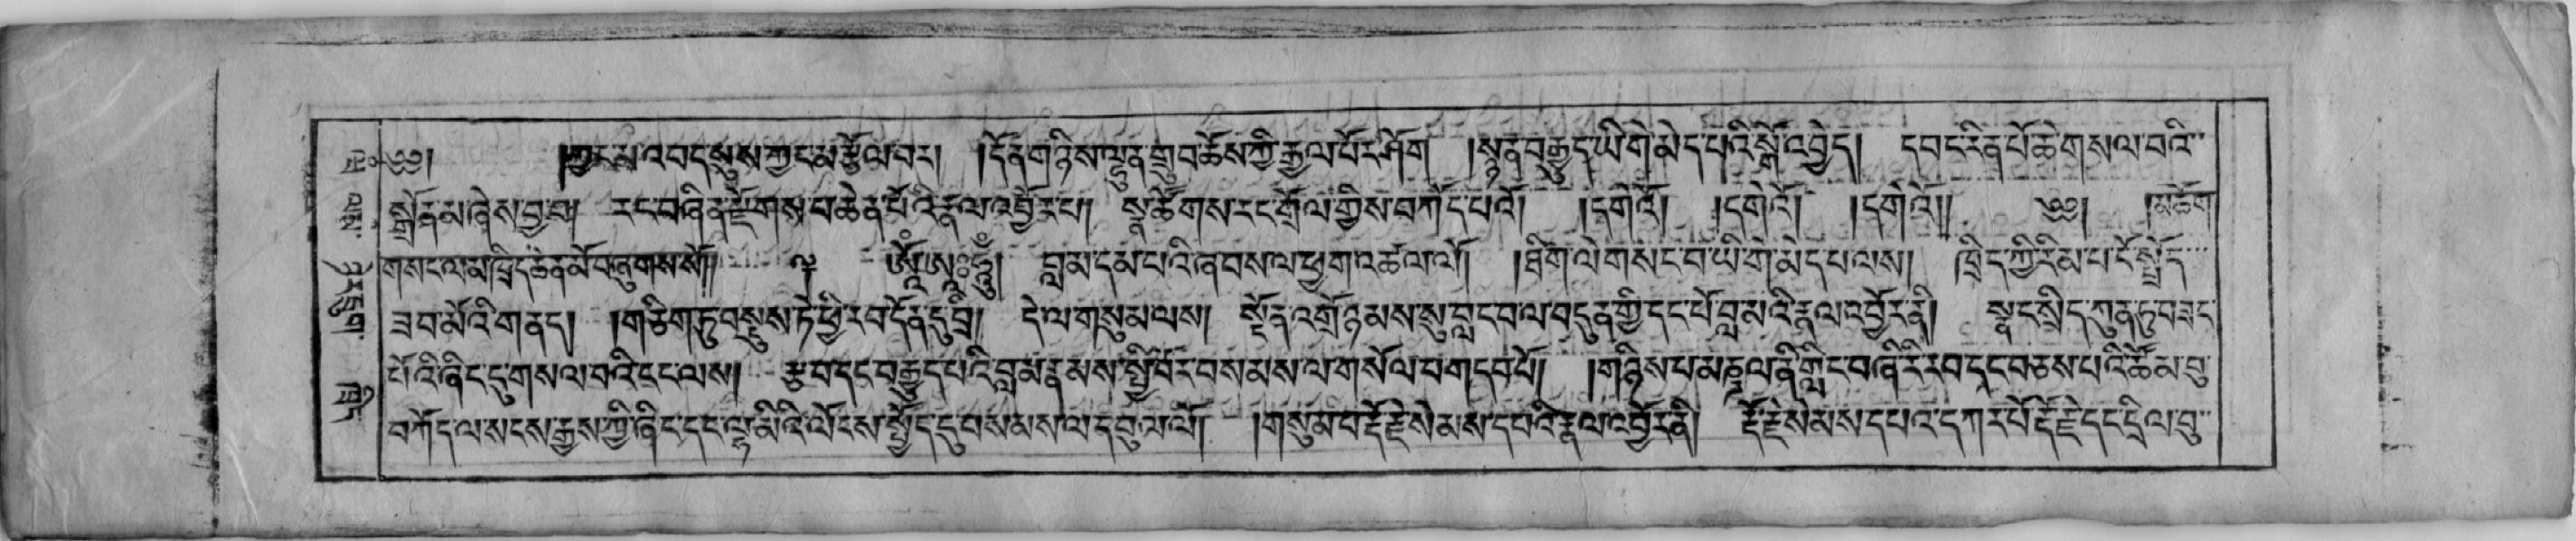 ༄༅། །ཀྱང་མ་འབད་སྨུས་ཀྱང་མ་རྩོལ་བར། །དོན་གཉིས་ལྷུན་གྲུབ་ཆོས་ཀྱི་རྒྱལ་པོར་ཤོག །སྙན་བརྒྱུད་ཡི་གེ་མེད་པའི་སྒོ་འབྱེད། དབང་རིན་པོ་ཆེ་གསལ་བའི་
སྒྲོན་མ་ཞེས་བྱ་བ། རང་བཞིན་རྫོགས་པ་ཆེན་པོའི་རྣལ་འབྱོར་པ། སྣ་ཚོགས་རང་གྲོལ་གྱིས་བཀོད་པའོ། །དགེའོ། །དགེའོ། །དགེའོ།། ༄༅། །མཆོག་
གསང་ལམ་ཁྲིད་ཆེན་མོ་བཞུགས་སོ།། ཨོཾ་ཨཱཿཧཱུྃ། བླ་མ་དམ་པའི་ཞབས་ལ་ཕྱག་འཚལ་ལོ། །ཐིག་ལེ་གསང་བ་ཡི་གེ་མེད་པ་ལས། ཁྲིད་ཀྱི་རིམ་པ་ངོ་སྤྲོད་
ཟབ་མོའི་གནད། །གཅིག་ཏུ་བསྡུས་ཏེ་ཕྱི་རབ་དོན་དུ་བྲི། དེ་ལ་གསུམ་ལས། སྔོན་འགྲོ་ཉམས་སུ་བླང་བ་ལ་བདུན་གྱི་དང་པོ་བླ་མའི་རྣལ་འབྱོར་ནི། སྣང་སྲིད་ཀུན་ཏུ་བཟང་
པོའི་ཞིང་དུ་གསལ་བའི་ངང་ལས། རྩ་བ་དང་བརྒྱུད་པའི་བླ་མ་རྣམས་སྤྱི་བོར་བསམས་ལ་གསོལ་བ་གདབ་པོ། །གཉིས་པ་མཎྜལ་ནི་གླིང་བཞི་རི་རབ་དང་བཅས་པའི་ཚོམ་བུ་
བཀོད་ལ་སངས་རྒྱས་ཀྱི་ཞིང་དང་ལྷ་མིའི་ལོངས་སྤྱོད་དུ་བསམས་ལ་དབུལ་ལོ། །གསུམ་པ་རྡོ་རྗེ་སེམས་དཔའི་རྣལ་འབྱོར་ནི། རྡོ་རྗེ་སེམས་དཔའ་དཀར་པོ་རྡོ་རྗེ་དང་དྲིལ་བུ་